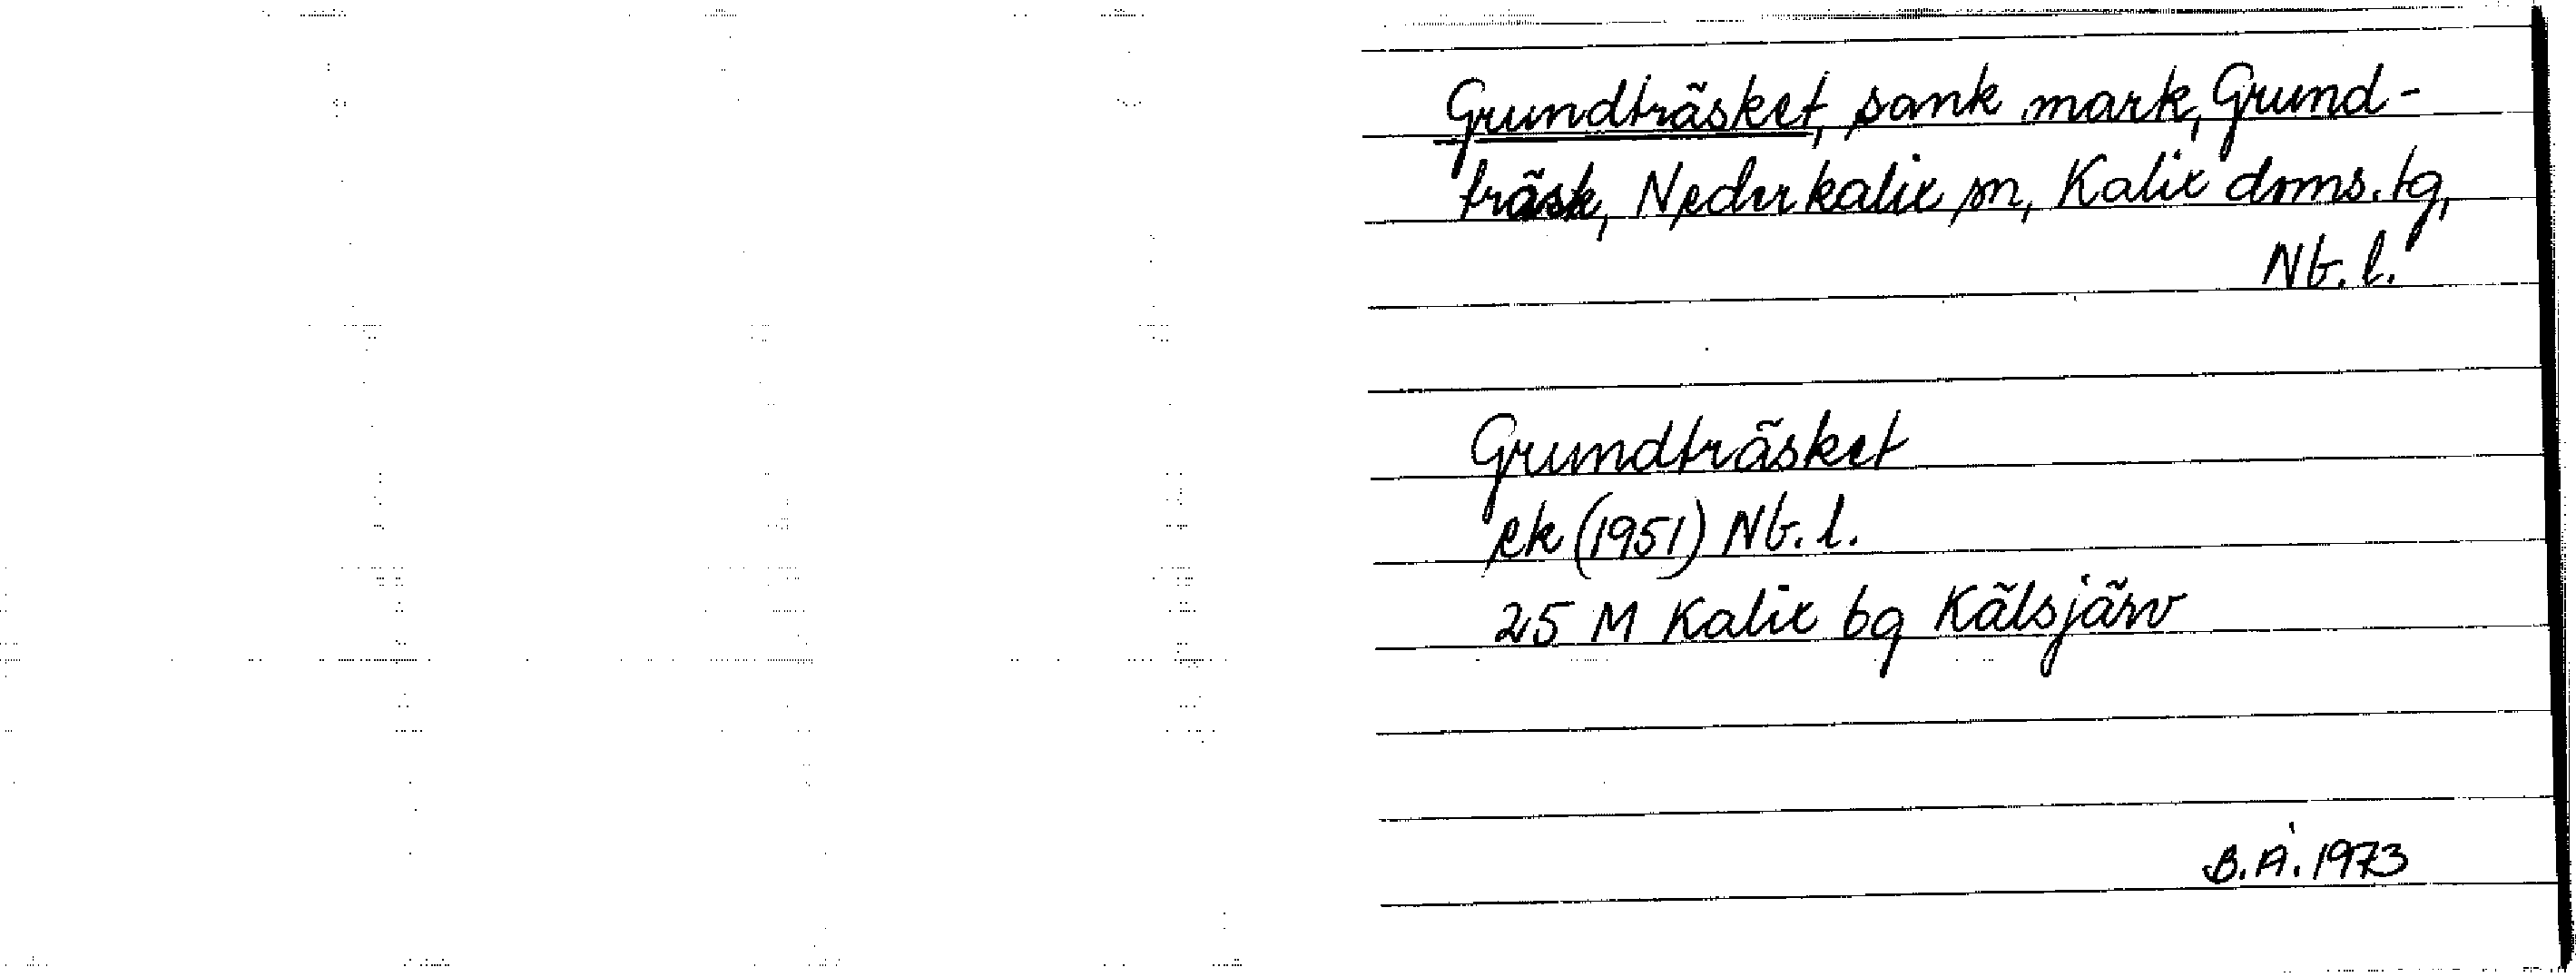 Grundträsket, sank mark, Grund-
träsk, Nederkalix sn, Kalix doms.tg,
Nb.l.
Grundträsket
ek (1951) Nb.l.
25 M Kalix bg Kälsjärv
B.Å.1973